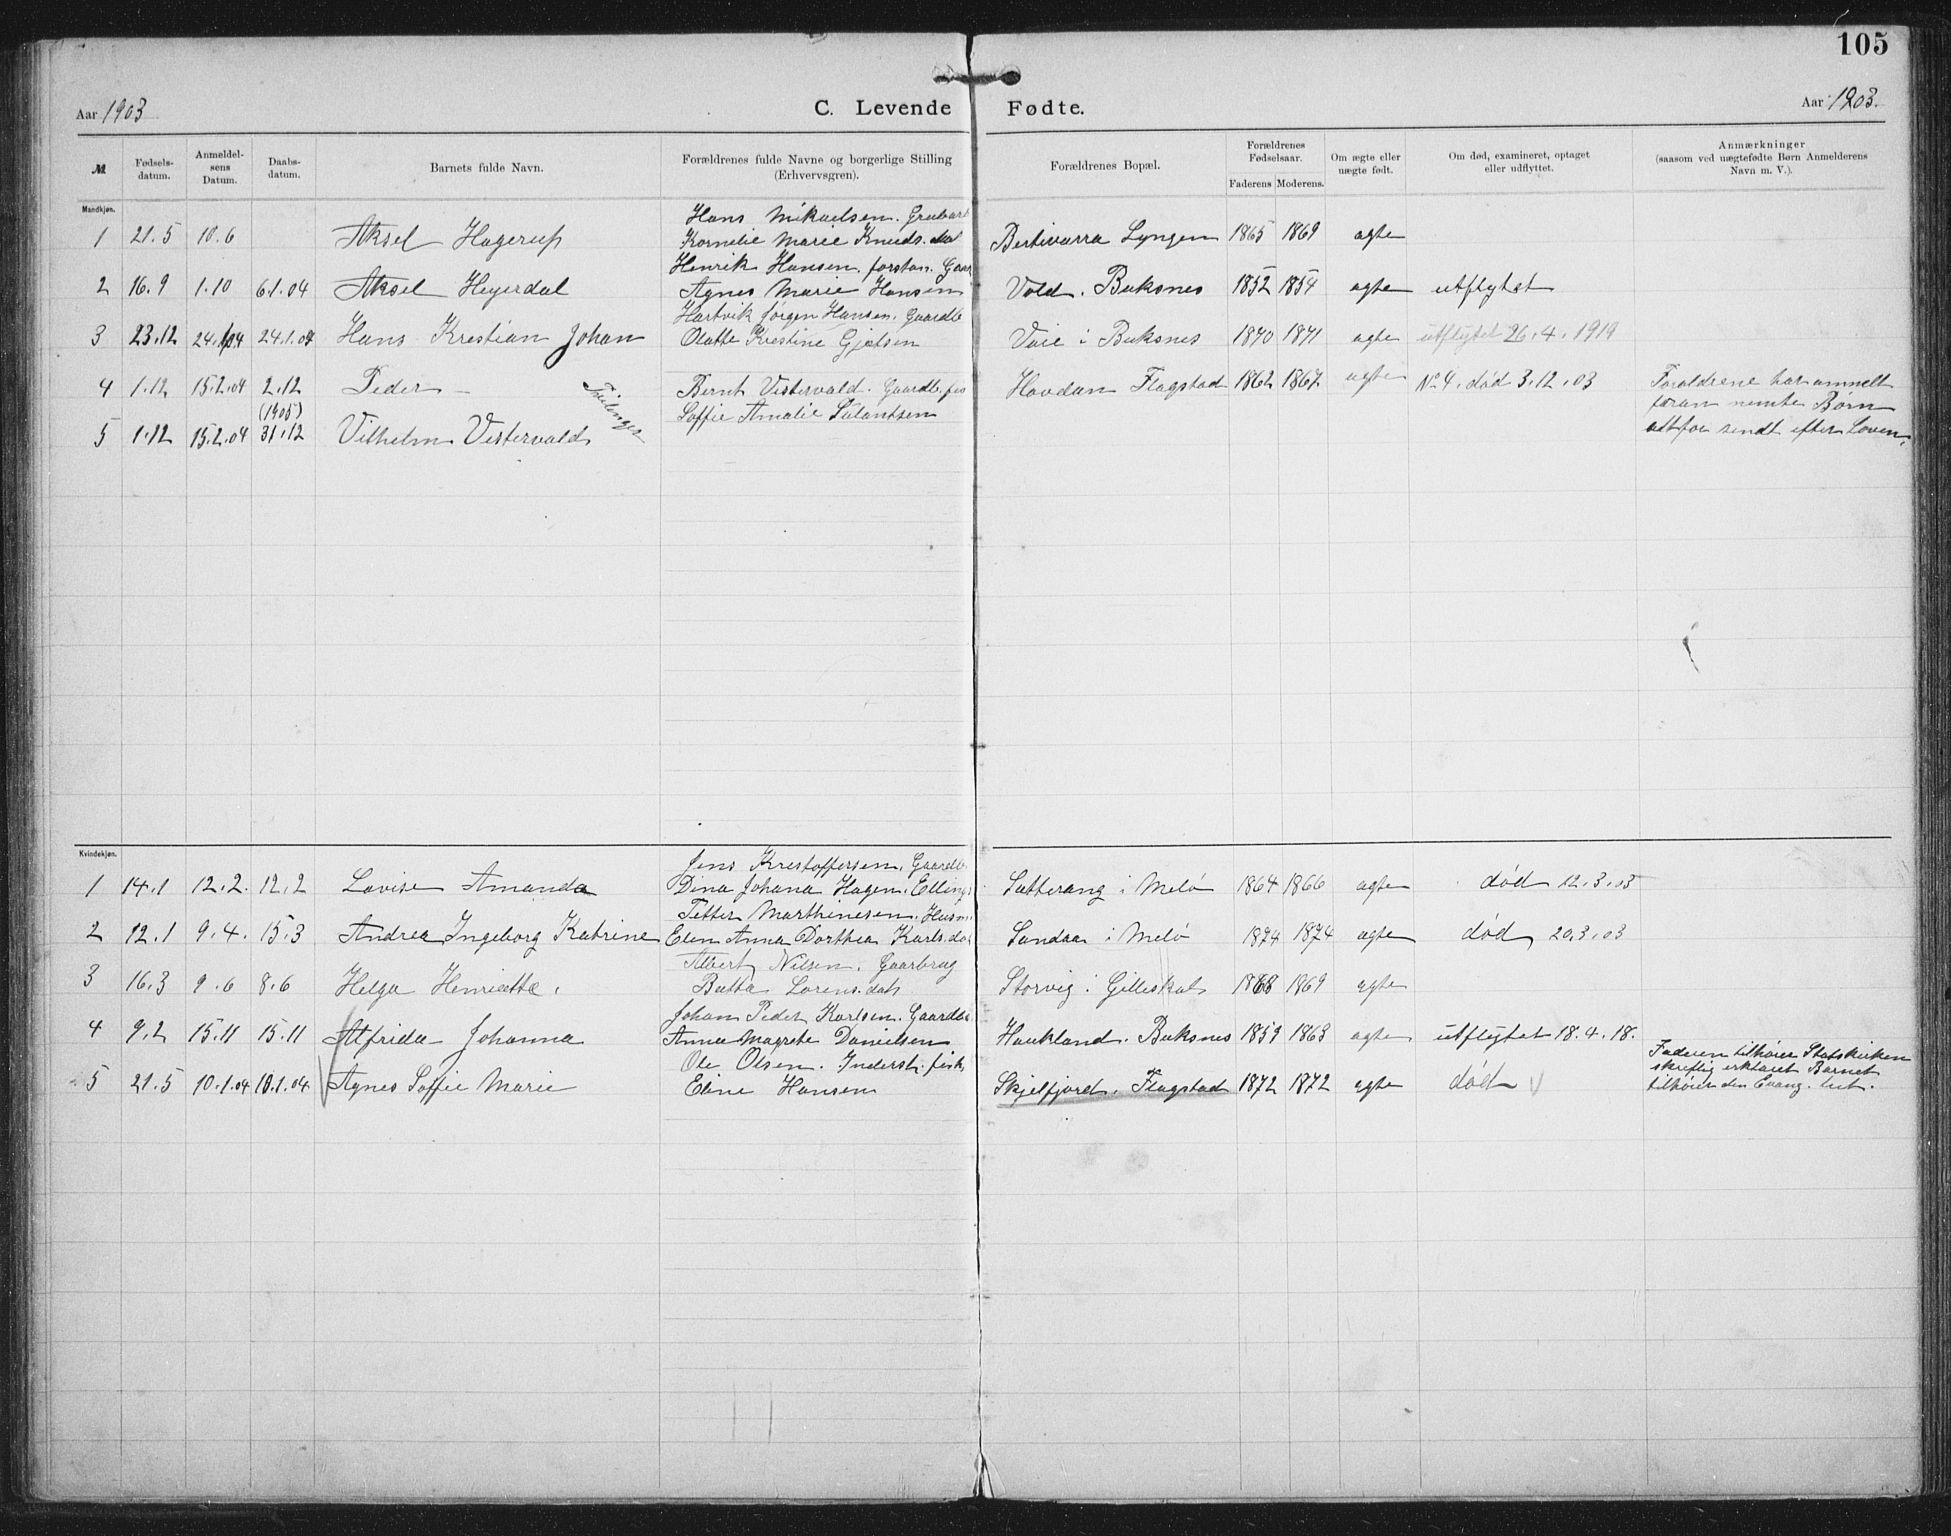 105
Aar 1903 C. Levende Fødte. Aar 1903.
№ Fødsels-datum. Anmeldel-sens Datum. Daabs-datum. Barnets fulde Navn. Forældrenes fulde Navne og borgerlige Stilling (Erhvervsgren). Forældrenes Bopæl. Forældrenes Fødselsaar. Faderens Moderens. Om ægte eller uægte født. Om død, examineret, optaget eller udflyttet. Anmærkninger (saasom ved uægtefødte Børn Anmelderens Navn m. V.).
Mandkjøn.
Hans Mikaelsen. Grubarb
1 21.5 10.6 Aksel Hagerup Kornelie Marie Knuds.dat Bertivarra Lyngen 1865 1869 ægte
Henrik Hansen. forstan. Gaar
2 16.9 1.10 6.1.04 Aksel Heyerdal Agnes Marie Hansen Vold. Buksnes 1852 1854 ægte utflytet
Hartvik Jørgen Hansen. Gaardb
3 23.12 24.1.04 24.1.04 Hans Krestian Johan Olatte Krestine Gjetsen Vaie i Buksnes 1870 1871 ægte utflytet 26.4.1919
4 1.12 15.2.04 2.12 Peder – Bernt Vestervald. Gaardb. fis Hovdan Flagstad 1862 1867 ægte No 4. død 3.12.03 Foraldrene har anmelt
(1905) Tvilinger Soffie Amalie foran nemte Børn
5 1.12 15.2.04 31.12 Vilhelm Vestervald alt for sendt efter Loven.
Kvindekjøn.
Jens Krestoffersen. Gaardb
1 14.1 12.2. 12.2 Lovise Amanda Dina Johana Hagen. Ellings Satterang i Melø 1864 1866 ægte død 12.3.03
Petter Marthinesen. Husm.
2 12.1 9.4. 15.3 Andrea Ingeborg Katrine Elen Anna Dorthea Karls.dat Sandaa i Melø 1874 1874 ægte død 20.3.03
Albert Nilsen. Gaarbrug
3 16.3 9.6 8.6 Helga Henriette. Batta Lorens.dat Storvig i Gilleskal 1868 1869 ægte
Johan Peder Karlsen. Gaardb.
4 9.2 15.11 15.11 Alfrida Johanna Anna Magrete Danielsen Haukland. Buksnes 1859 1863 ægte utflytet 18.4.18.
Ole Olsen. Inderst. fisk Faderen tilhører Statskirken
5 21.5 10.1.04 10.1.04 Agnes Soffie Marie Eline Hansen Skjelfjord. Flagstad 1872 1872 ægte død skriftlig erklaret Barnet
tilhører den Evang. lut.